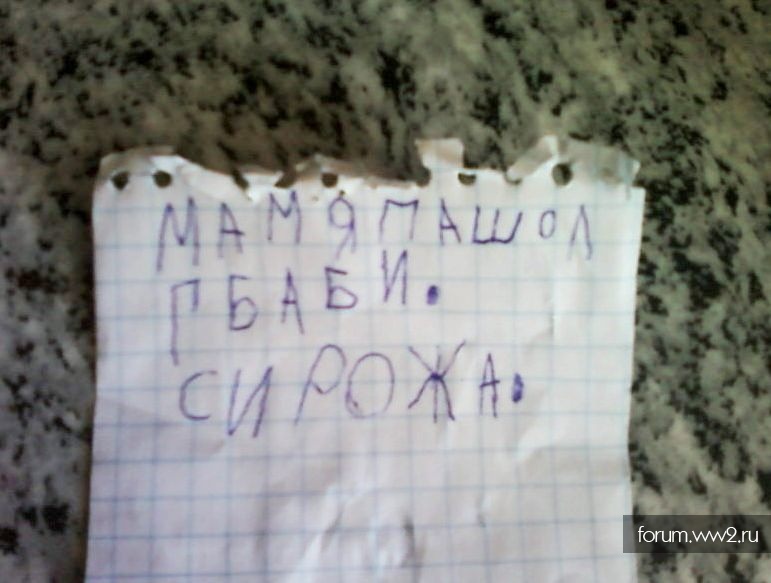 МАМ Я ПАШОЛ
Г БАБИ.
СИРОЖА.
forum.ww2.ru